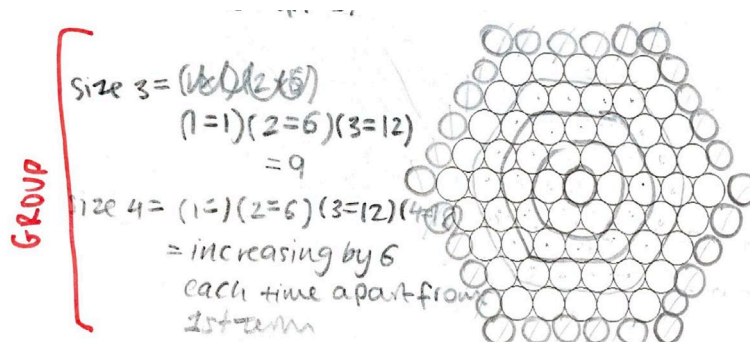 GROUP
size 3 =
(1=1)(2=6)(3=12)
= 9
size 4 = (1=)(2=6)(3=12)
= increasing by 6
each time apart from
1st term